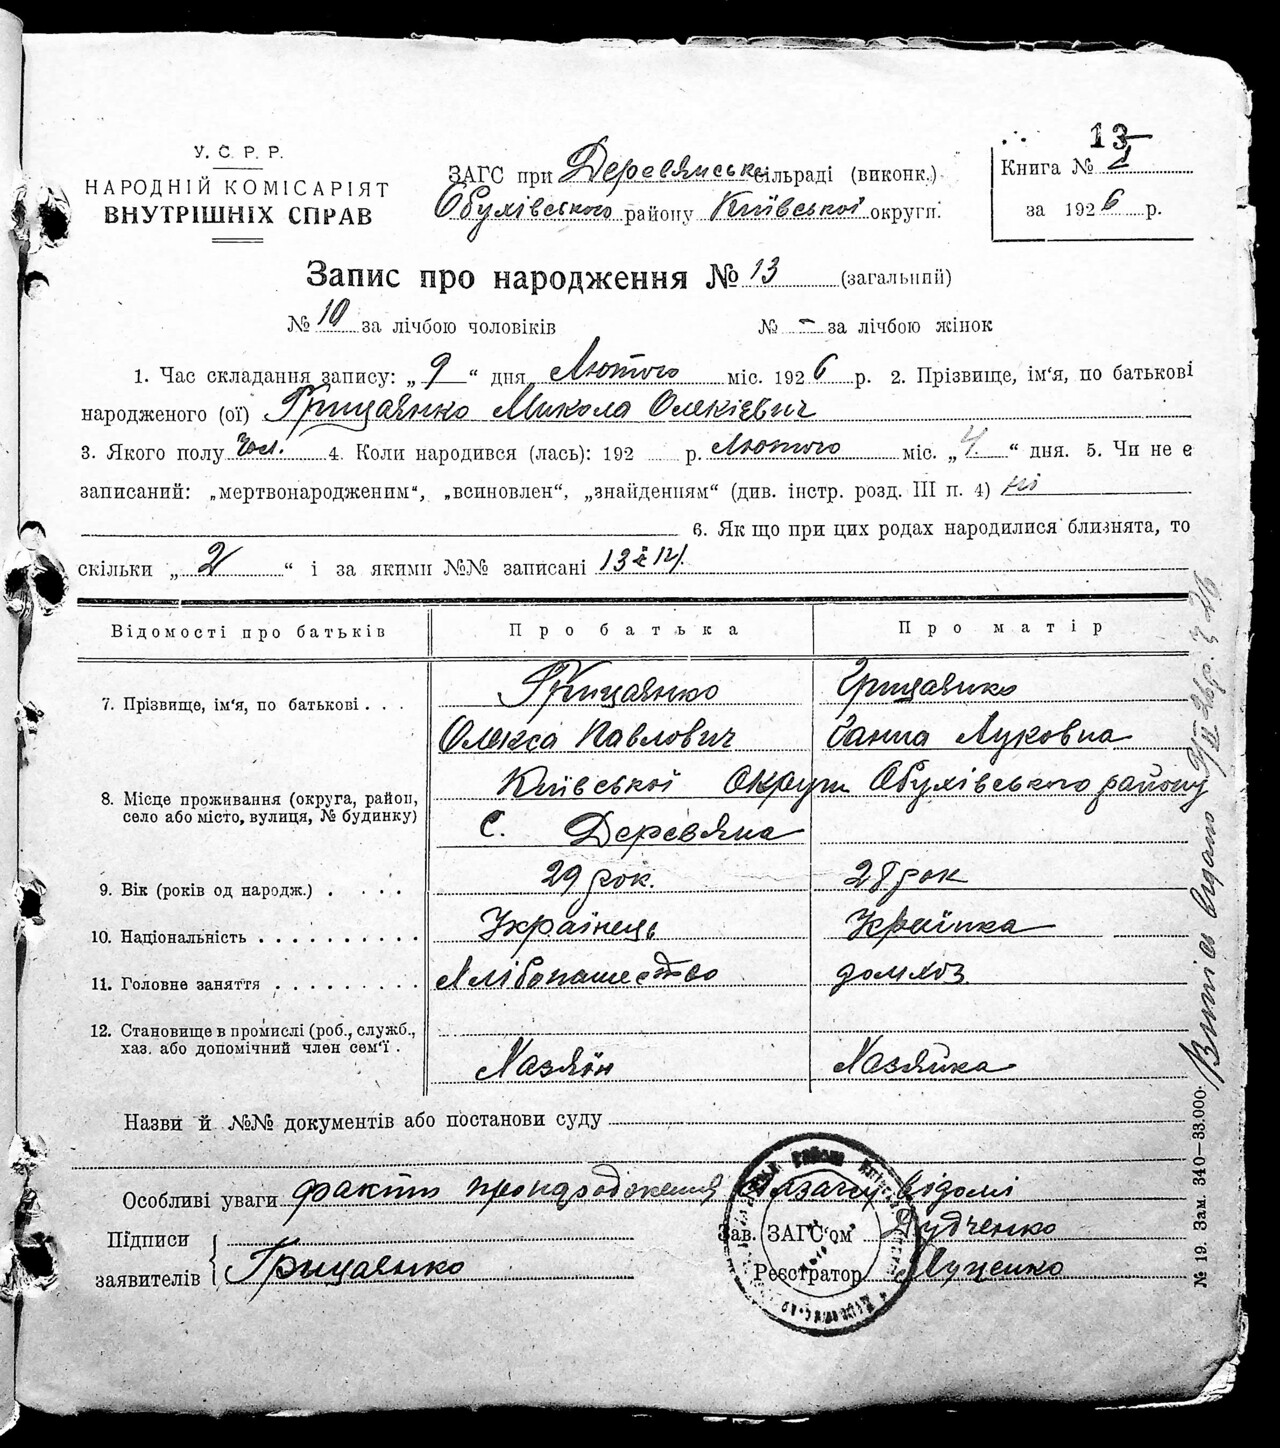 13
У. С. Р. Р.
НАРОДНІЙ КОМІСАРІЯТ
ВНУТРІШНІХ СПРАВ
ЗАГС при Деревянськ. сільраді (виконк.)
Обухівського району Київської округи.
Книга № 1
за 1926 р.
Запис про народження № 13 (загальний)
№ 10 за лічбою чоловіків № - за лічбою жінок
1. Час складання запису: „9“ дня Лютого міс. 1926 р. 2. Прізвище, ім'я, по батькові
народженого (ої) Грицаянко Микола Олексієвич
3. Якого полу чол. 4. Коли народився (лась): 192 р. Лютого міс. „4.“ дня. 5. Чи не є
записаний: „мертвонародженим“, „всиновлен“, „знайденням“ (див. інстр. розд. III п. 4) ні
6. Як що при цих родах народилися близнята, то
скільки „2“ і за якими №№ записані 13 і 14.
Відомості про батьків Про батька Про матір
7. Прізвище, ім'я, по батькові . . . Грицаянко Грицаянко
Олекса Павлович Ганна Луковна
8. Місце проживання (округа, район, село або місто, вулиця, № будинку) Київської Округи Обухівського району
С. Деревяна
9. Вік (років од народж.) . . . . 29 рок. 28 рок
10. Національність . . . . . . . . . . Українець Українка
11. Головне заняття . . . . . . . . . Хлібопашество домхоз.
12. Становище в промислі (роб., служб., хаз. або допомічний член сем'ї . Хазяїн Хазяйка
Назви й №№ документів або постанови суду
Особливі уваги факти про народження відомі
Підписи
заявителів Грицаянко
Зав. ЗАГС'ом Дудченко
Реєстратор Луценко
№ 19. Зам. 340—33.000.
Випис видано